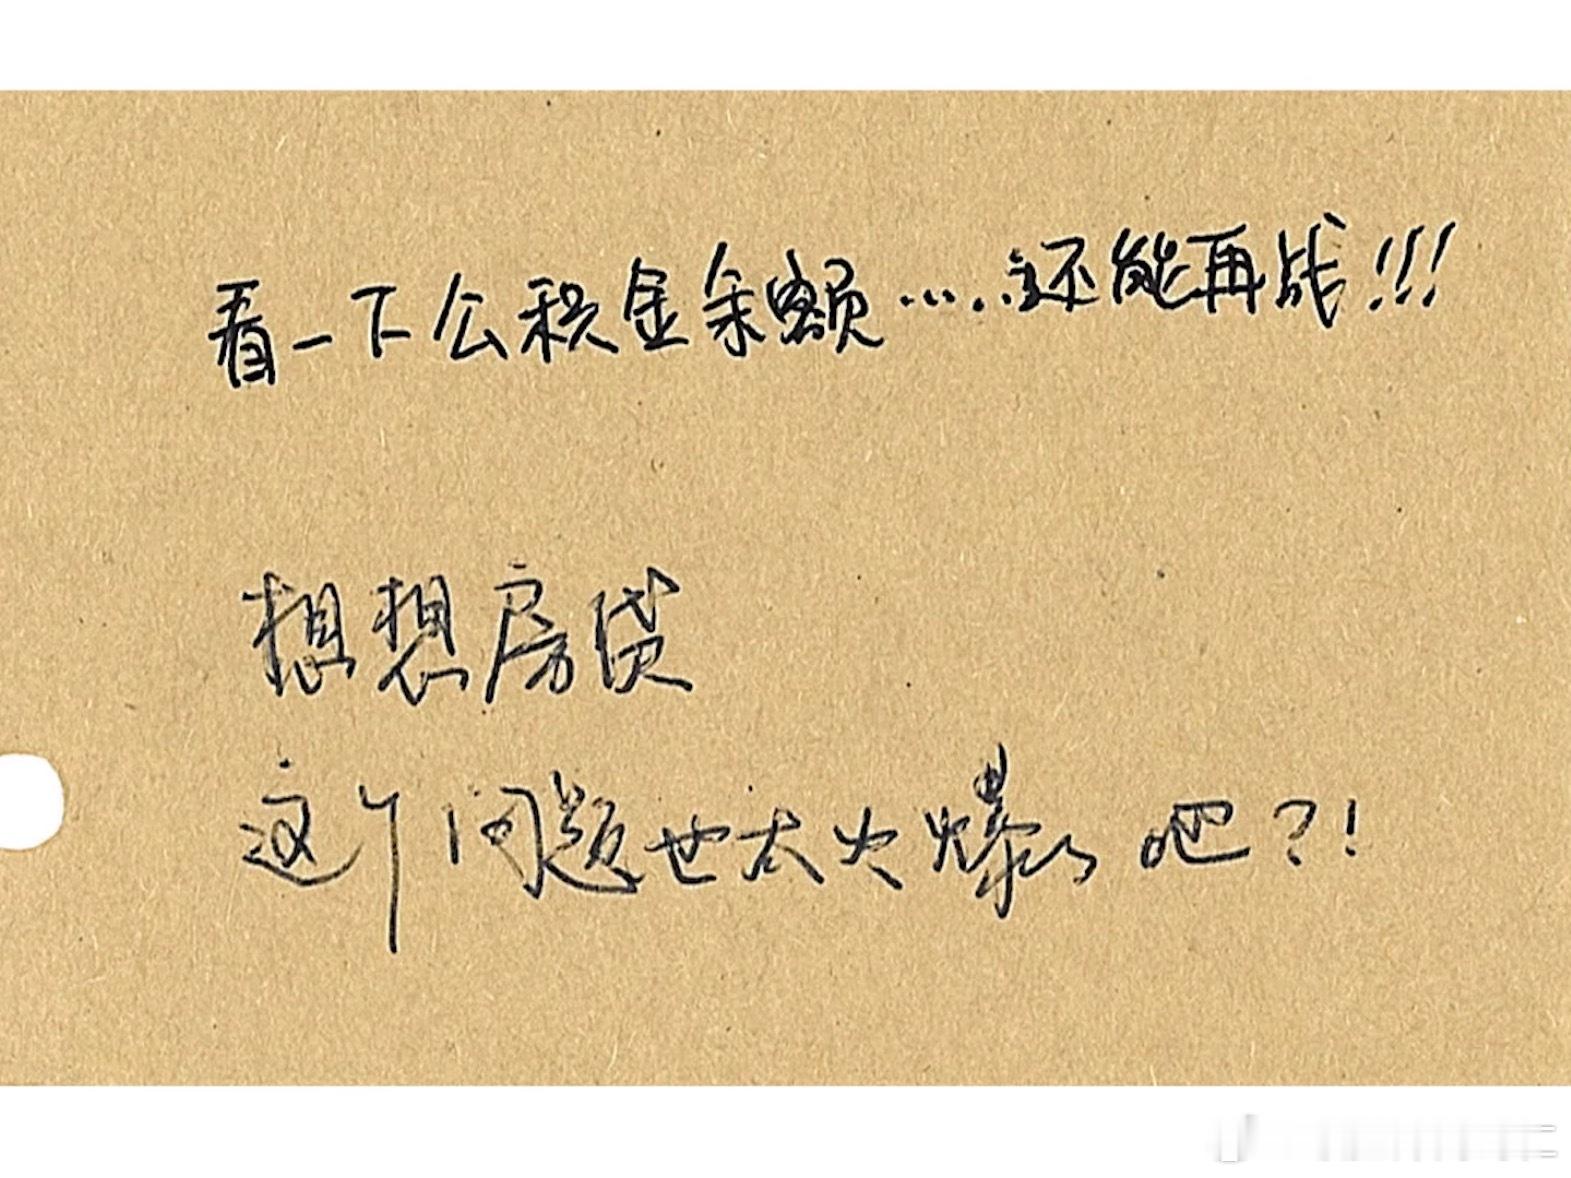 看一下公积金余额……还能再战!!!
想想房贷
这个问题也太火爆了吧?!